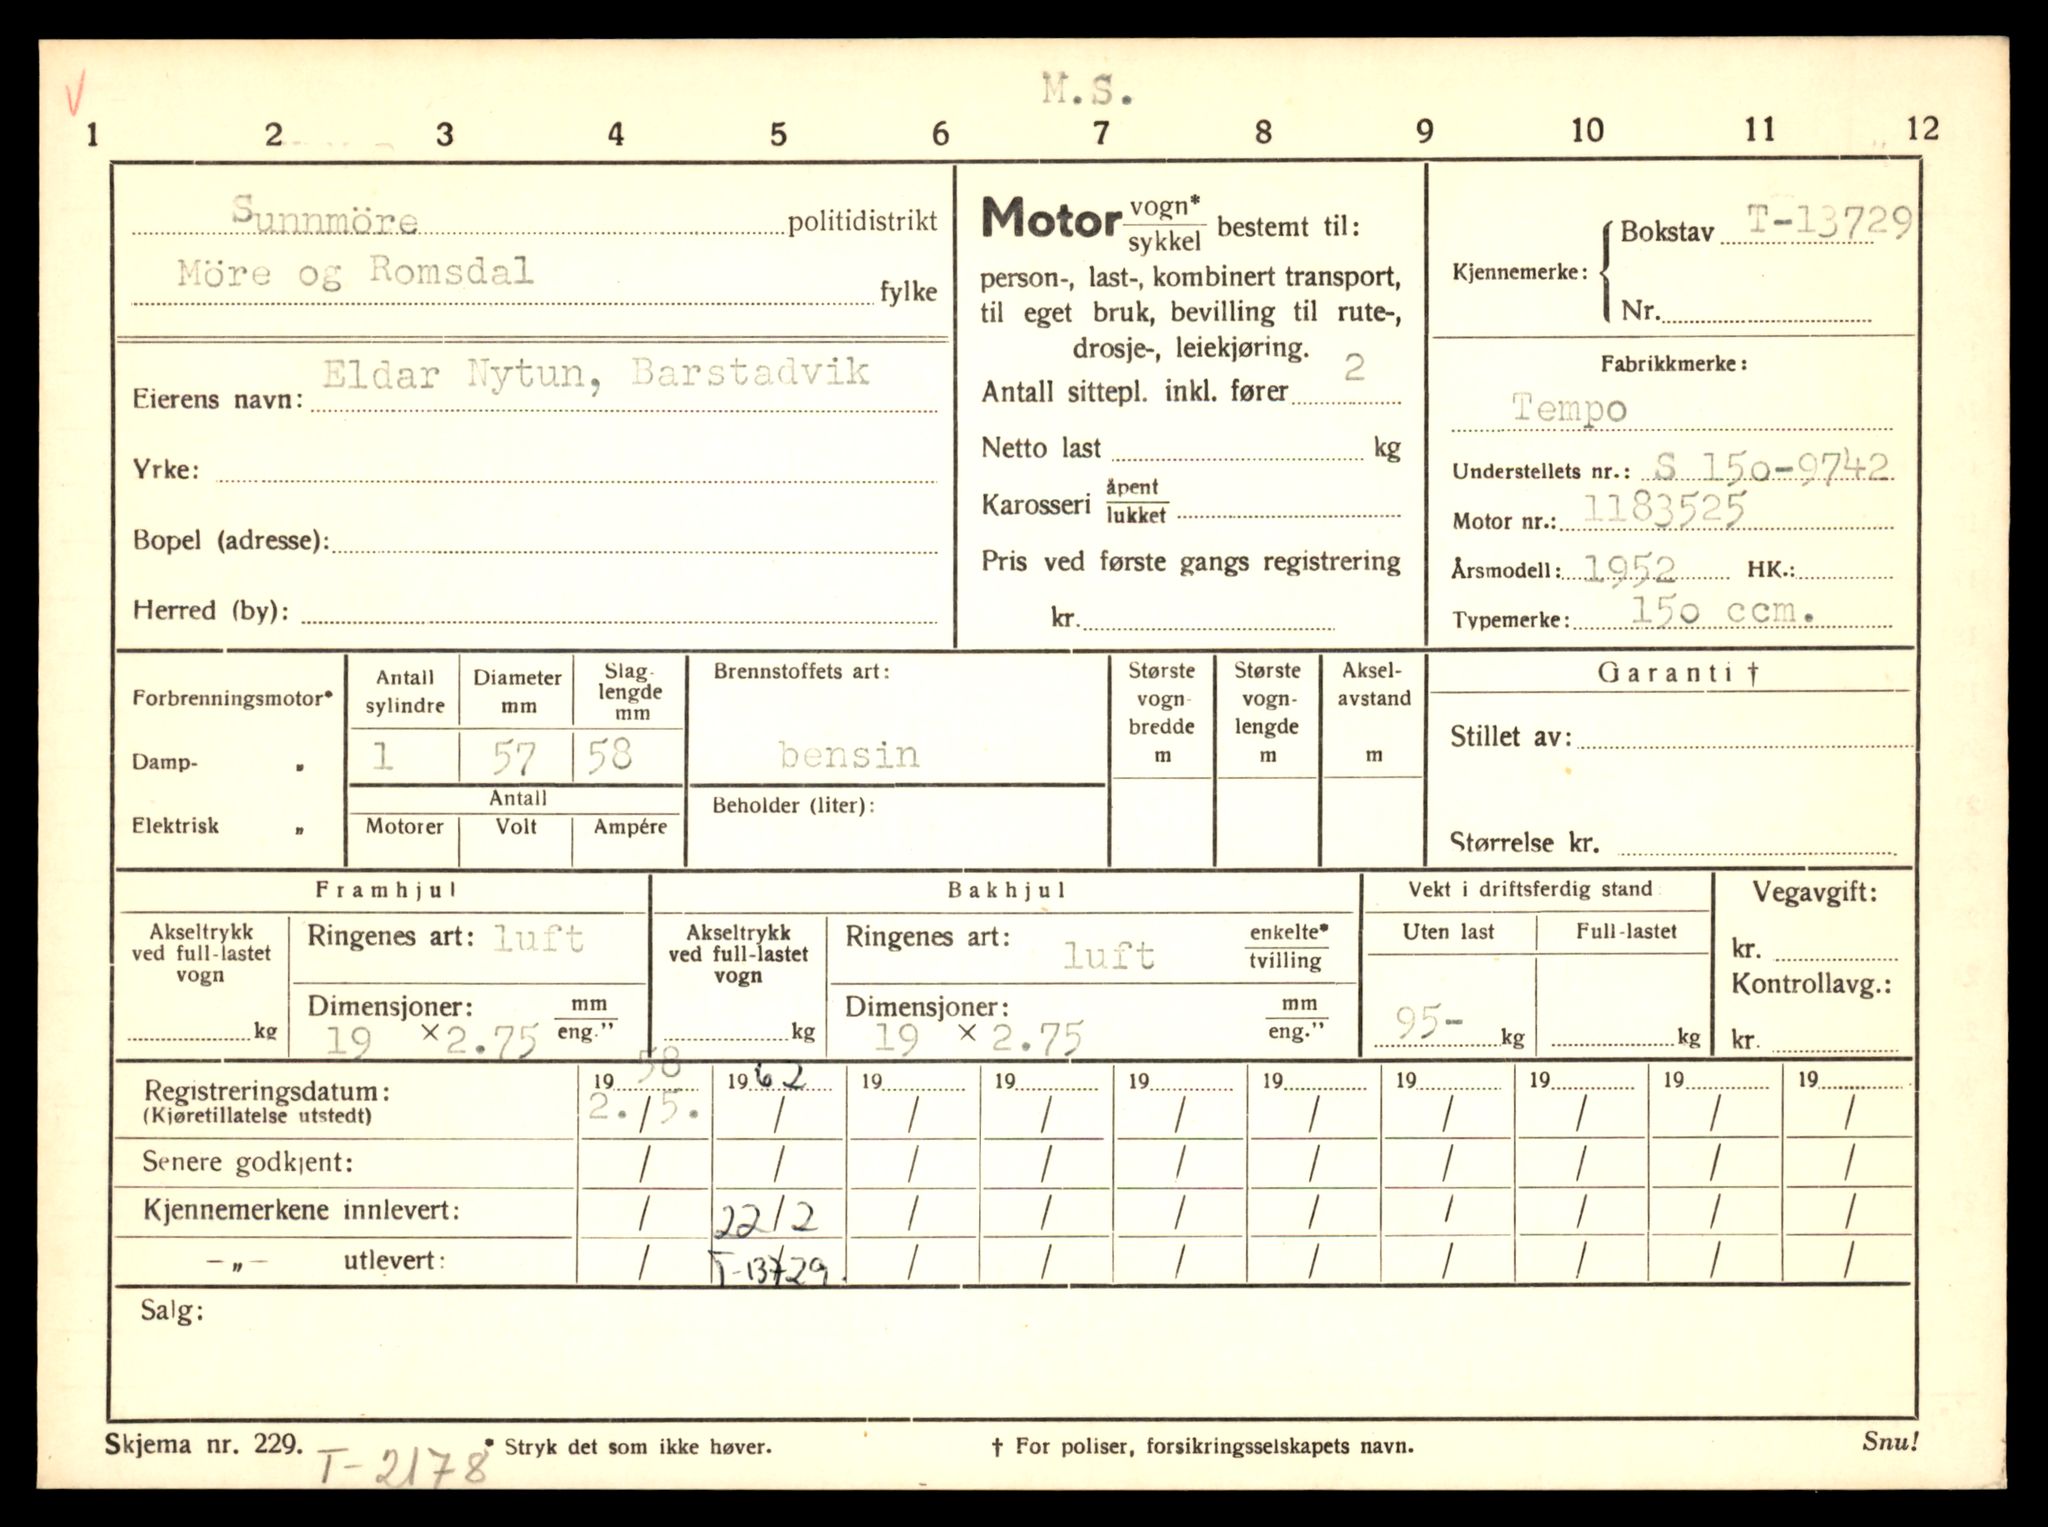 M.S.
1 2 3 4 5 6 7 8 9 10 11 12
Sunnmöre politidistrikt
Möre og Romsdal fylke
Eierens navn: Eldar Nytun, Barstadvik
Yrke:
Bopel (adresse):
Herred (by):
Motor vogn* / sykkel bestemt til:
person-, last-, kombinert transport,
til eget bruk, bevilling til rute-,
drosje-, leiekjøring.
Antall sittepl. inkl. fører 2
Netto last kg
Karosseri åpent / lukket
Pris ved første gangs registrering
kr.
Kjennemerke: { Bokstav T-13729
Nr.
Fabrikkmerke:
Tempo
Understellets nr.: S 15o-9742
Motor nr.: 1183525
Årsmodell: 1952 HK.:
Typemerke: 15o ccm.
Forbrenningsmotor*
Damp- „
Elektrisk „
Antall sylindre
Diameter mm
Slaglengde mm
1 57 58
Antall
Motorer Volt Ampére
Brennstoffets art:
bensin
Beholder (liter):
Største vognbredde m
Største vognlengde m
Akselavstand m
Garanti †
Stillet av:
Størrelse kr.
Framhjul
Akseltrykk ved full-lastet vogn
kg
Ringenes art: luft
Dimensjoner: mm / eng."
19 × 2.75
Bakhjul
Akseltrykk ved full-lastet vogn
kg
Ringenes art: luft enkelte* / tvilling
Dimensjoner: mm / eng."
19 × 2.75
Vekt i driftsferdig stand
Uten last Full-lastet
95- kg kg
Vegavgift:
kr.
Kontrollavg.:
kr.
Registreringsdatum: 1958 1962 19 19 19 19 19 19 19 19
(Kjøretillatelse utstedt) 2. / 5. / / / / / / / / /
Senere godkjent: / / / / / / / / / /
Kjennemerkene innlevert: / 22/2 / / / / / / / /
—„— utlevert: / T-13729. / / / / / / / /
Salg:
Skjema nr. 229. * Stryk det som ikke høver. † For poliser, forsikringsselskapets navn. Snu!
T-2178